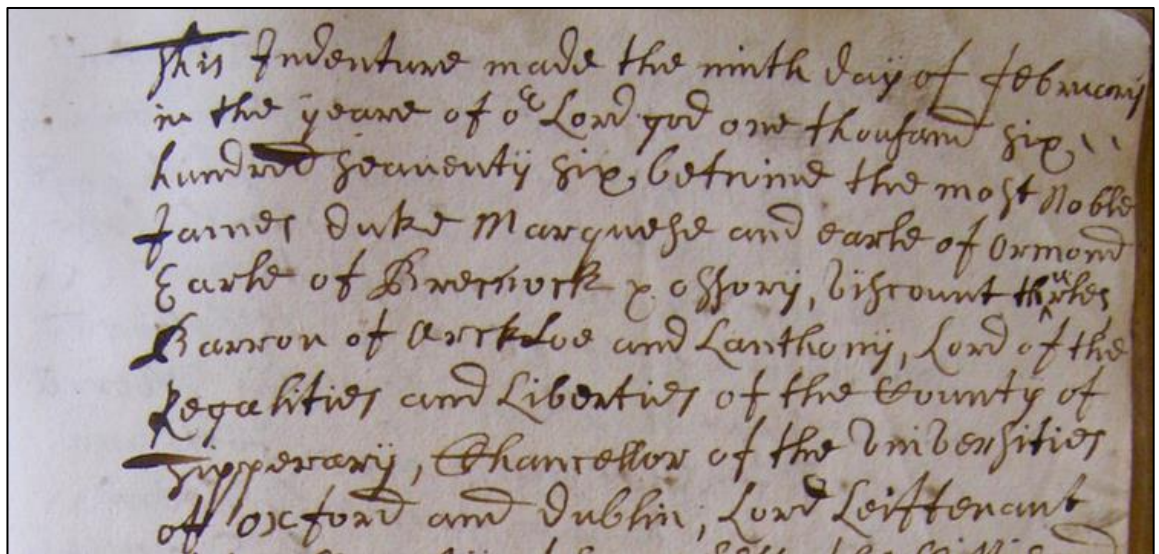 This Indenture made the ninth day of february
in the yeare of oʳ Lord god one thousand six
hundred seaventy six, betwine the most Noble
James Duke Marquese and earle of Ormond
Earle of Brecnock & Ossory, Viscount thurles,
Barron of Arckloe and Lanthony, Lord of the
Regalities and Liberties of the County of
Tipperary, Chancellor of the Vniversities
off oxford and Dublin, Lord Leiftenant